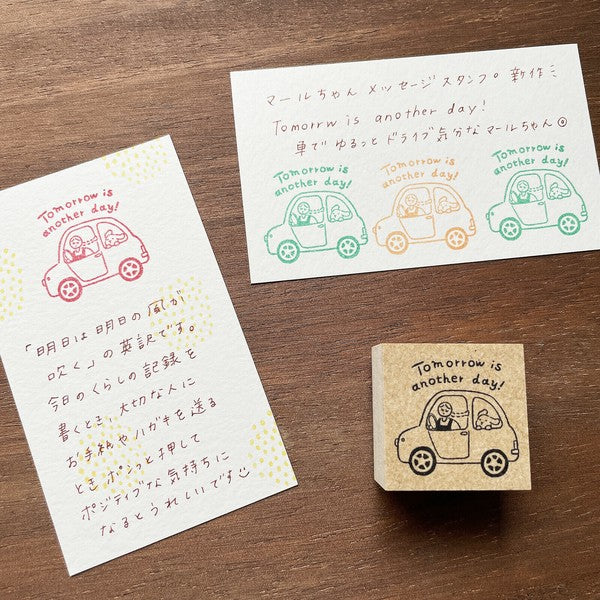 Tomorrow is
another day!
「明日は明日の風が
吹く」の英訳です。
今日のくらしの記録を
書くとき、大切な人に
お手紙やハガキを送る
ときポンっと押して
ポジティブな気持ちに
なるとうれしいです
マールちゃん メッセージスタンプ。新作
Tomorrw is another day!
車でゆるっとドライブ気分なマールちゃん
Tomorrow is
another day!
Tomorrow is
another day!
Tomorrow is
another day!
Tomorrow is
another day!